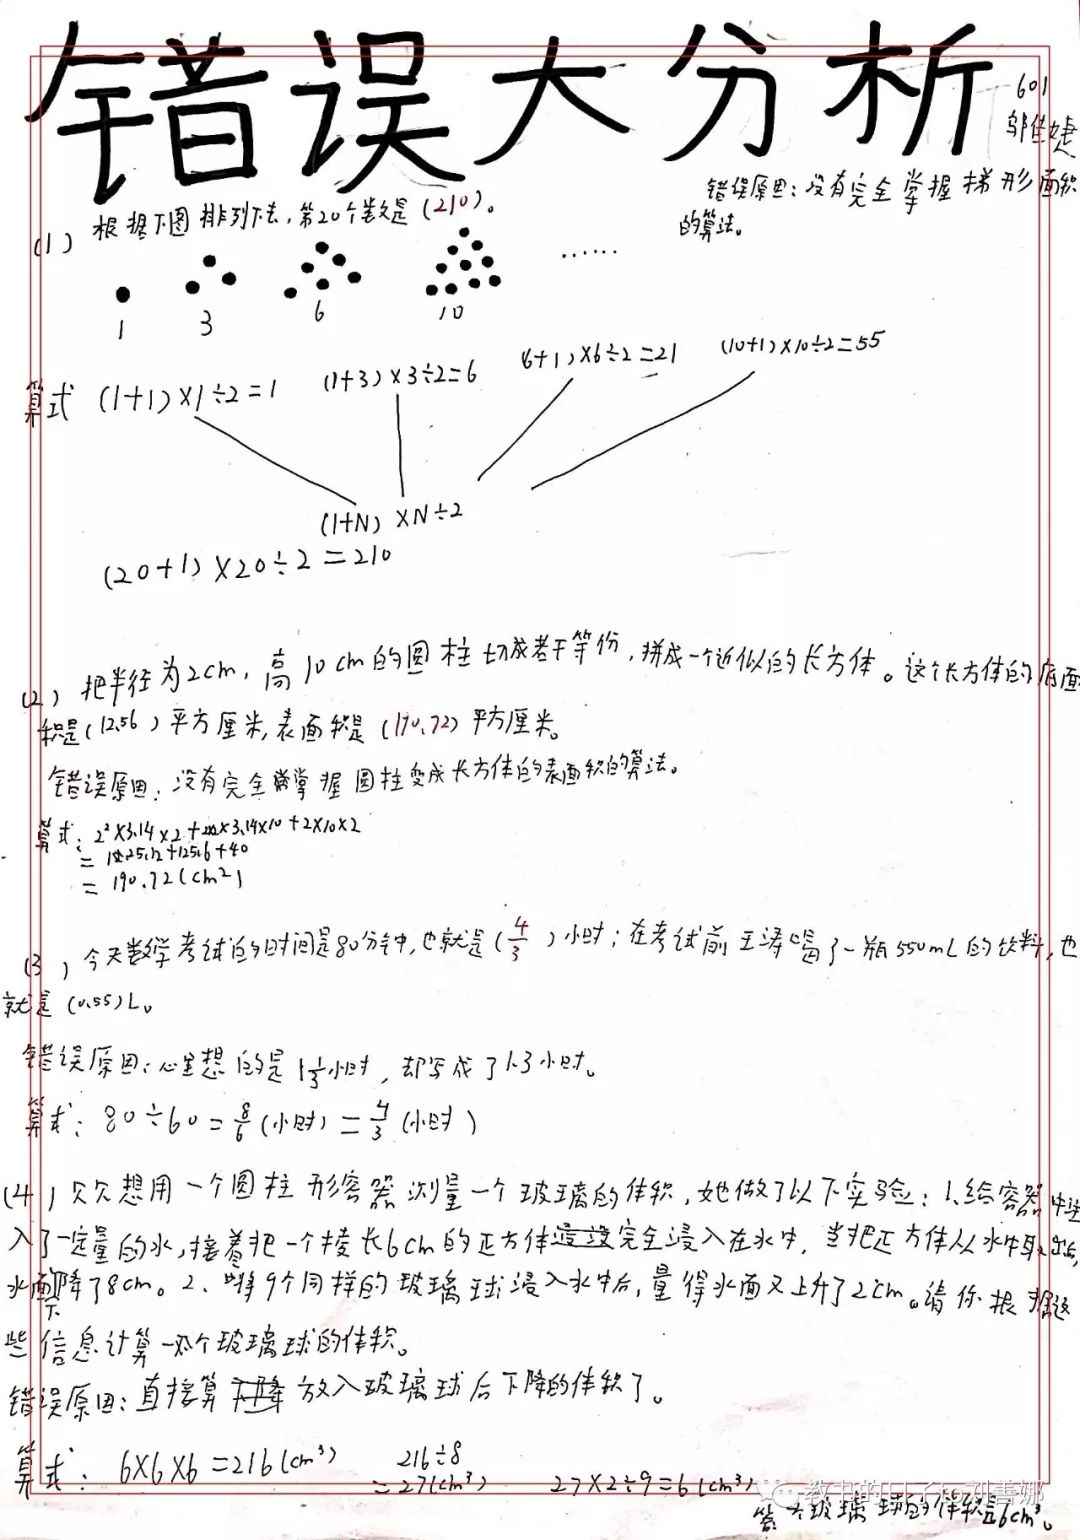 错误大分析
601
邬佳婕
错误原因：没有完全掌握梯形面积
的算法。
(1) 根据下图排列下去，第20个数是(210)。
……
1 3 6 10
算式 (1+1)×1÷2=1 (1+3)×3÷2=6 (6+1)×6÷2=21 (10+1)×10÷2=55
(1+N)×N÷2
(20+1)×20÷2=210
(2) 把半径为2cm，高10cm的圆柱切成若干等份，拼成一个近似的长方体。这个长方体的底面
积是(12.56)平方厘米，表面积是(190.72)平方厘米。
错误原因：没有完全掌握圆柱变成长方体的表面积的算法。
算式：2²×3.14×2+2×2×3.14×10+2×10×2
=25.12+125.6+40
=190.72(cm²)
(3) 今天数学考试的时间是80分钟，也就是(4/3)小时；在考试前王涛喝了一瓶550mL的饮料，也
就是(0.55)L。
错误原因：心里想的是1⅓小时，却写成了1.3小时。
算式：80÷60=8/6(小时)=4/3(小时)
(4) 欠欠想用一个圆柱形容器测量一个玻璃的体积，她做了以下实验：1.给容器中注
入了一定量的水，接着把一个棱长6cm的正方体完全浸入在水中，当把正方体从水中取出后，
水面下降了8cm。2、将9个同样的玻璃球浸入水中后，量得水面又上升了2cm。请你根据这
些信息计算一个玻璃球的体积。
错误原因：直接算放入玻璃球后下降的体积了。
算式：6×6×6=216(cm³) 216÷8
=27(cm³) 27×2÷9=6(cm³)
答：玻璃球的体积是6cm³。
教书的日子to刘善娜